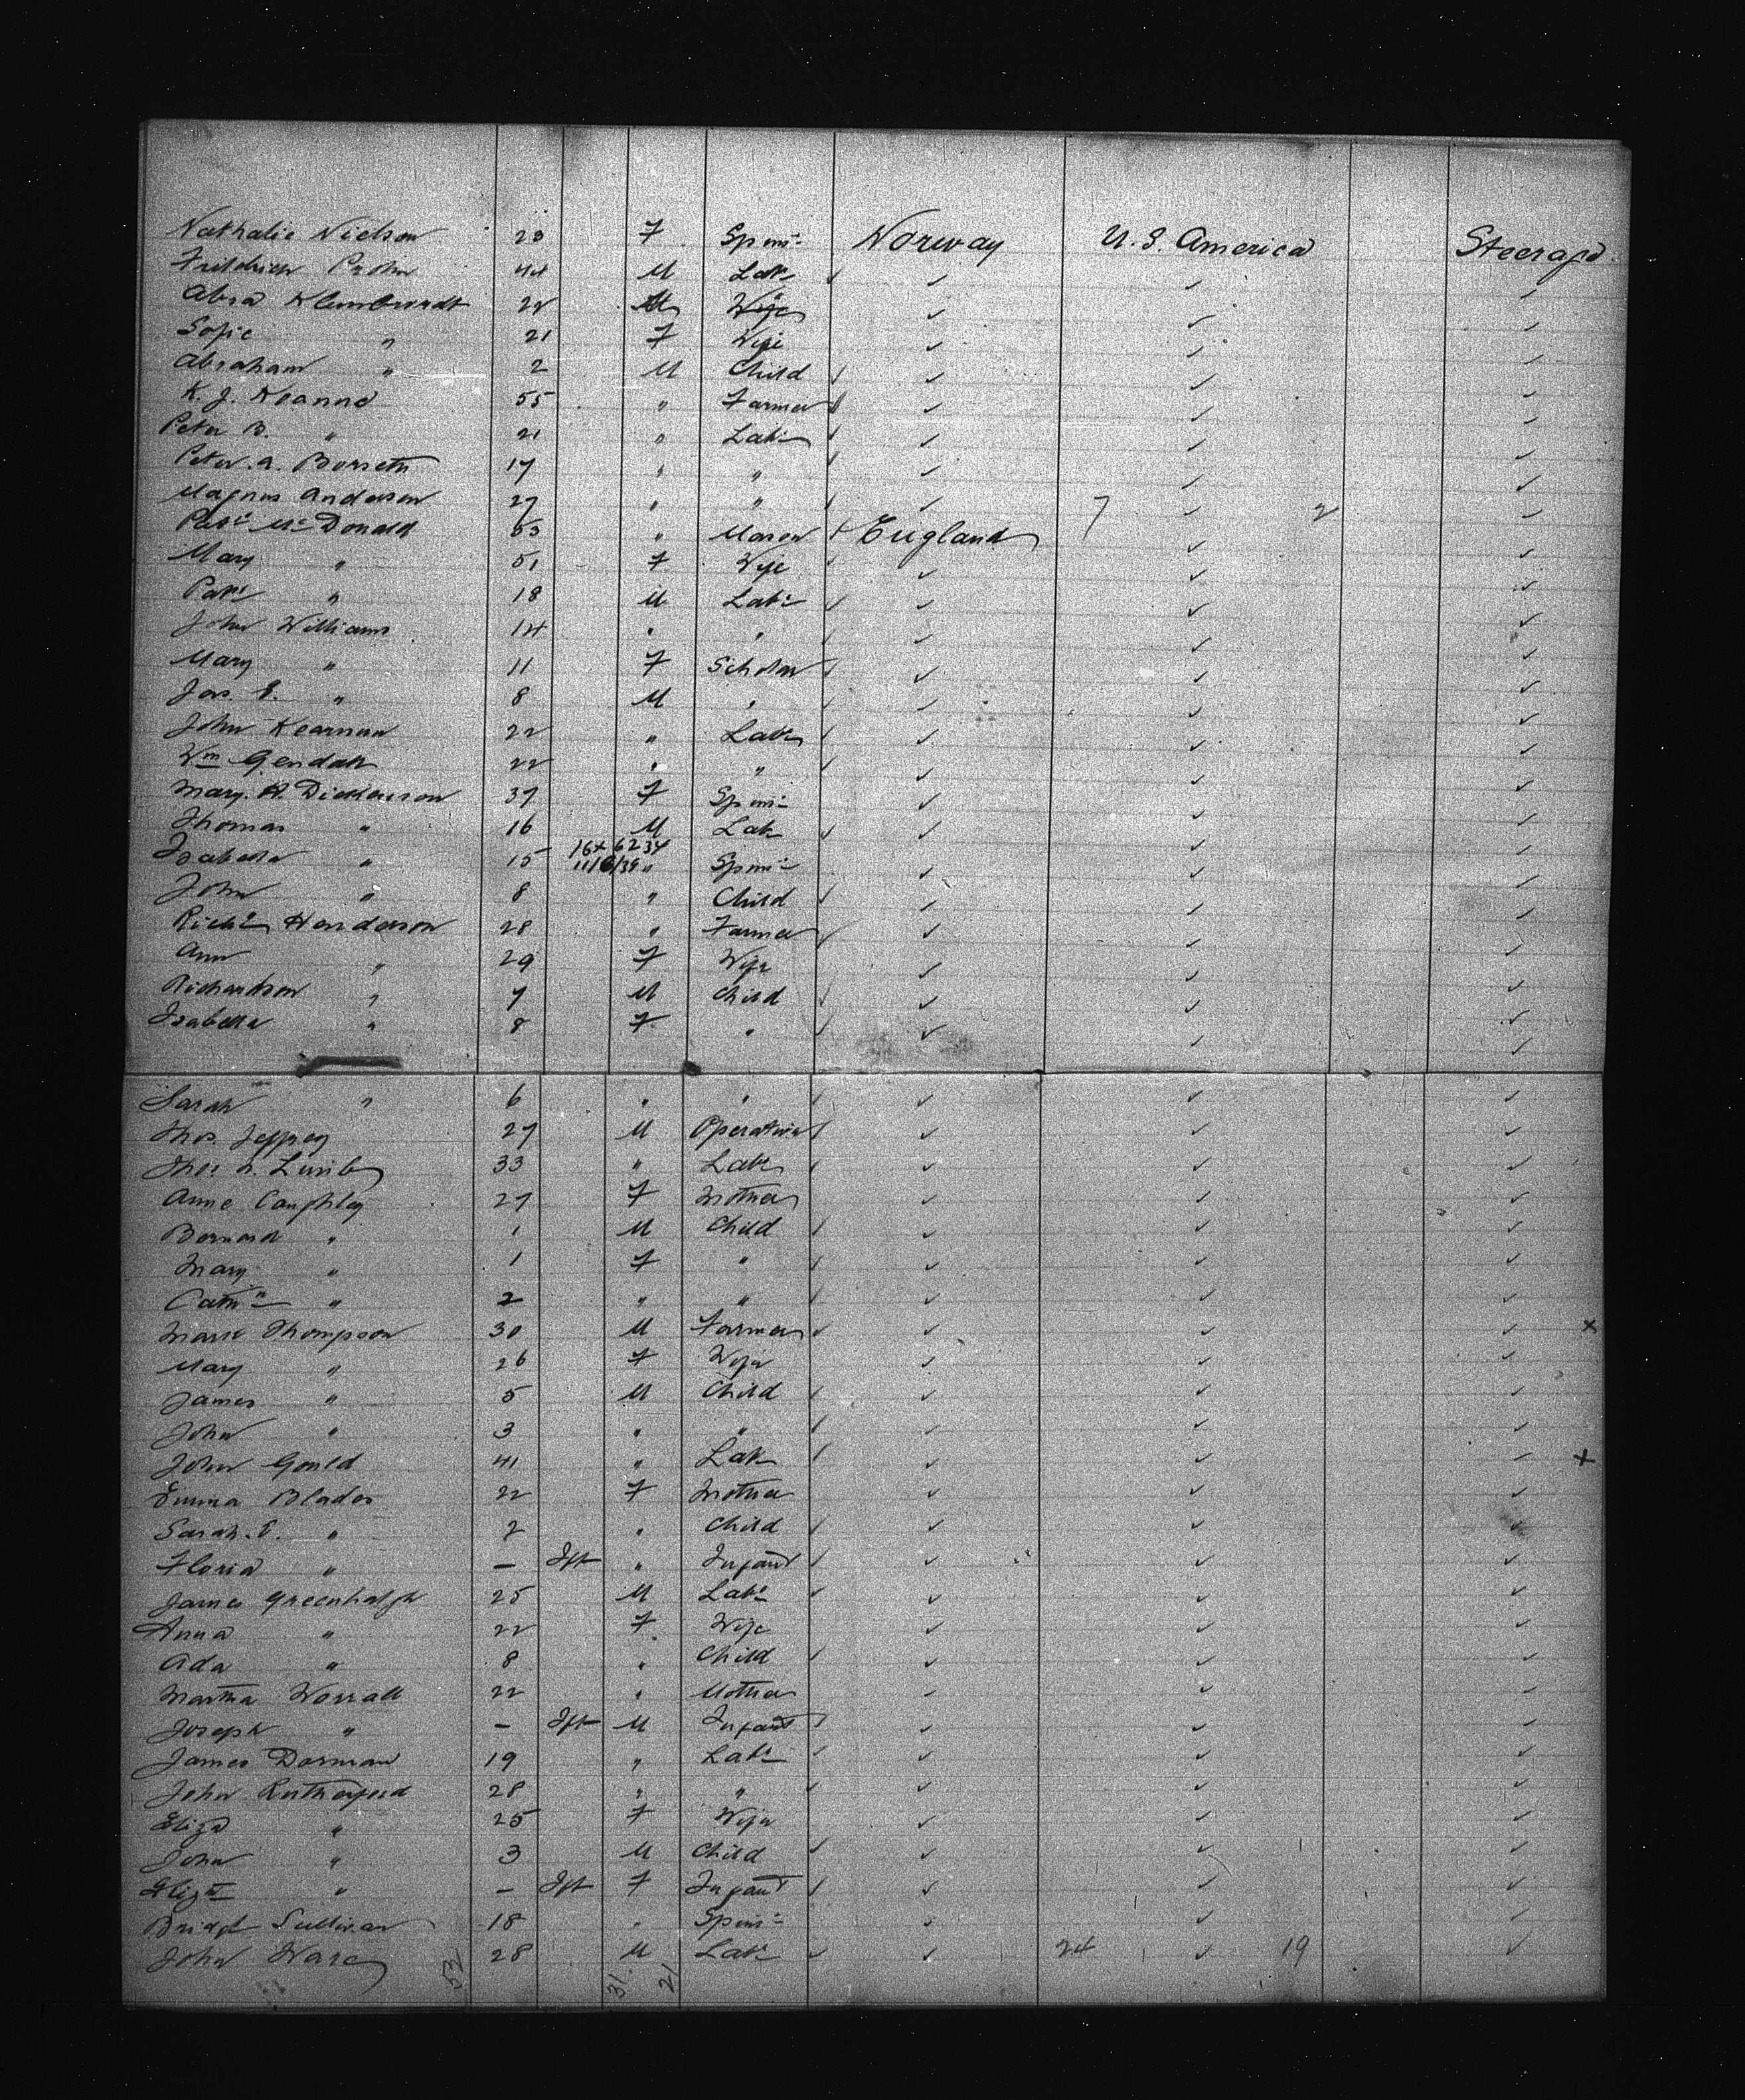 Nathalie Nielson 23 F Spinr Norway U.S. America Steerage
Fridrich 44 M Labr ✓ ✓ ✓ ✓
Abra 22 M Wife ✓ ✓ ✓
Sofie " 21 F Wife ✓ ✓ ✓
Abraham " 2 M Child ✓ ✓ ✓ ✓
K. J. 55 " Farmer ✓ ✓ ✓
Peter B. " 21 " Labr ✓ ✓ ✓ ✓
Peter. A. 17 " " ✓ ✓ ✓ ✓
Magnus Anderson 27 " " ✓ ✓ 7 ✓ 2 ✓
Patk McDonald 53 " Mason England ✓ ✓
Mary " 51 F Wife ✓ ✓ ✓ ✓
Patk " 18 M Labr ✓ ✓ ✓ ✓
John Williams 14 " " ✓ ✓ ✓ ✓
Mary " 11 F Scholar ✓ ✓ ✓ ✓
Jas. E. " 8 M " ✓ ✓ ✓ ✓
John Kearnan 22 " Labr ✓ ✓ ✓ ✓
Wm 22 " " ✓ ✓ ✓ ✓
Mary. A. Dickenson 37 F Spinr ✓ ✓ ✓
Thomas " 16 M Labr ✓ ✓ ✓ ✓
Isabella " 15 16x6234 11/6/39 " Spinr ✓ ✓ ✓
John " 8 " Child ✓ ✓ ✓ ✓
Richd Henderson 28 " Farmer ✓ ✓ ✓ ✓
Ann " 29 F Wife ✓ ✓ ✓
Richardson " 7 M Child ✓ ✓ ✓ ✓
Isabella " 8 F " ✓ ✓ ✓ ✓
Sarah " 6 " " ✓ ✓ ✓ ✓
Thos. Jeffrey 27 M Operative ✓ ✓ ✓ ✓
Thos. 33 " Labr ✓ ✓ ✓ ✓
Anne Caughley 27 F Mother ✓ ✓ ✓
Bernard " 1 M Child ✓ ✓ ✓ ✓
Mary " 1 F " ✓ ✓ ✓ ✓
Cathn " 2 " " ✓ ✓ ✓ ✓
Thompson 30 M Farmer ✓ ✓ ✓ ✓ x
Mary " 26 F Wife ✓ ✓ ✓
James " 5 M Child ✓ ✓ ✓ ✓
John " 3 " " ✓ ✓ ✓ ✓
John Gould 41 " Labr ✓ ✓ ✓ ✓ x
Emma Blades 22 F Mother ✓ ✓ ✓
Sarah. E. " 2 " Child ✓ ✓ ✓ ✓
Floria " — Ift " Infant ✓ ✓ ✓ ✓
James Greenhalgh 25 M Labr ✓ ✓ ✓ ✓
Anna " 22 F Wife ✓ ✓ ✓
Ada " 8 " Child ✓ ✓ ✓ ✓
Martha Worrall 22 " Mother ✓ ✓ ✓
Joseph " — Ift M Infant ✓ ✓ ✓ ✓
James Dorman 19 " Labr ✓ ✓ ✓ ✓
John Rutherford 28 " " ✓ ✓ ✓ ✓
Eliza " 25 F Wife ✓ ✓ ✓
John " 3 M Child ✓ ✓ ✓ ✓
Elizth " — Ift F Infant ✓ ✓ ✓ ✓
Bridgt Sullivan 18 " Spinr ✓ ✓ ✓
John Ware 28 M Labr ✓ ✓ 24 ✓ 19 ✓
52 31 21